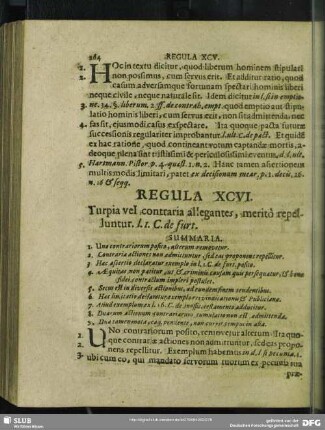 284 REGULA XCV.
1. HOc in textu dicitur, quod liberum hominem stipulari
2. non possimus, cum servus erit. Et additur ratio, quod
casum adversamque fortunam spectari hominis liberi
neque civile, neque naturale sit. Idem dicitur in l. si in emptio-
3. ne. 34. §. liberum. 2. ff. de contrah. empt. quod emptio aut stipu-
latio hominis liberi, cum servus erit, non sit admittenda, nec
4. fas sit, ejusmodi casus exspectare. Ita quoque pacta futuræ
successionis regulariter improbantur. l. ult. C. de pact. Et quidē
ex hac ratione, quod contineant votum captandæ mortis, a-
deoque plena sint tristissimi & periculosissimi eventus, d. l. ult.
5. Hartmann. Pistor. p. 4. quæst. 1. n. 2. Hanc tamen assertionem
multis modis limitari, patet ex decisionum mear. p. 1. decis. 26.
n. 16 & seqq.
REGULA XCVI.
Turpia vel contraria allegantes, meritò repel-
luntur. l. 1. C. de furt.
SUMMARIA.
1. Uno contrariorum posito, alterum removetur.
2. Contrariæ actiones non admittuntur, sed eas proponens repellitur.
3. Hac assertio declaratur exemplo in l. 1. C. de furt. posito.
4. Æquitas non patitur, ut & criminis causam quis persequatur, & bona
fidei, contractum impleri postulet.
5. Secus est in diversis actionibus, ad eundem finem tendentibus.
6. Hac limitatio declaratur exemplo condictionis & Publicianæ.
7. Aliud exemplum ex l. 1. C. de inoffic. testament. adducitur.
8. Duarum actionum contrariarum cumulatio non est admittenda.
9. Una tamen mota, eaq; pendente, non currit tempus in alia.
1. UNo contrariorum posito, removetur alterum. Ita quo-
2. que contrariæ actiones non admittuntur, sed eas propo-
nens repellitur. Exemplum habemus in d. l. si pecunia. 1.
3. ubi cum eo, qui mandato servorum tuorum ex pecunia sua
præ-
SLUB
Wir führen Wissen.
gefördert von der
Deutschen Forschungsgemeinschaft
DFG